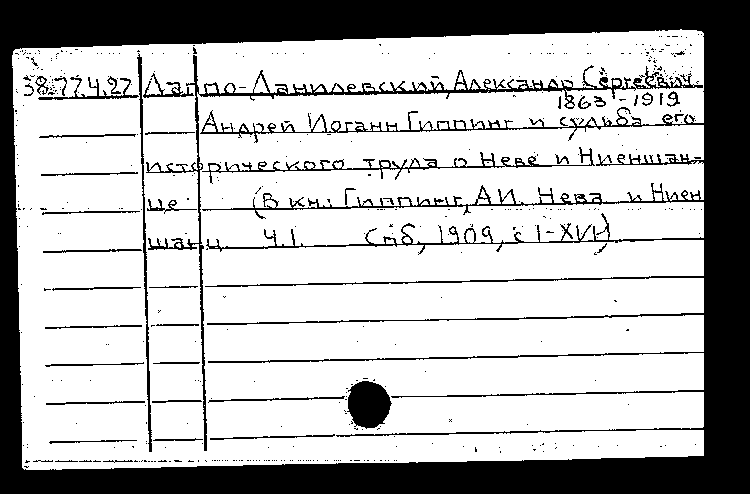 38.77.4.27 Лаппо-Данилевский, Александр Сергеевич.
1863-1919
Андрей Иоганн Гиппинг и судьба его
исторического труда о Неве и Ниеншан-
це (В кн.: Гиппинг, А.И. Нева и Ниен
шанц. Ч.I. Спб, 1909, с I-XVII)